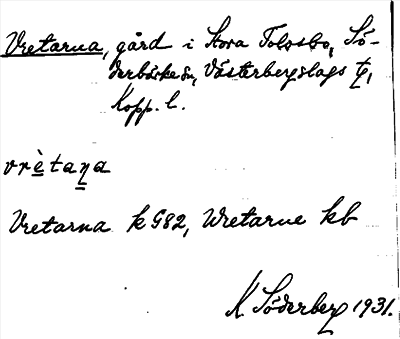 Vretarna, gård i Stora Tolsbo, Sö-
derbärke sn, Västerbergslags tg,
Kopp. l.
vrètaṉa
Vretarna k G82, Wretarne kb
K Söderberg 1931.